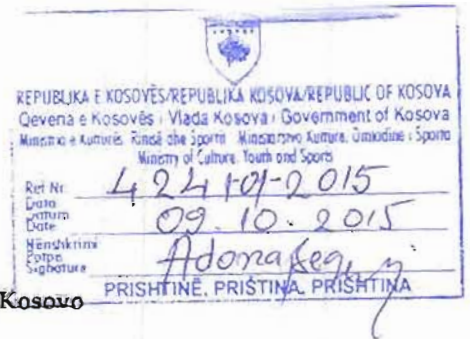 REPUBLIKA E KOSOVËS/REPUBLIKA KOSOVA/REPUBLIC OF KOSOVA
Qeveria e Kosovës - Vlada Kosova - Government of Kosova
Ministria e Kulturës, Rinisë dhe Sportit - Ministarstvo Kulture, Omladine i Sporta
Ministry of Culture, Youth and Sports
Ref Nr. 424-01-2015
Data
Datum
Date 09.10.2015
Nënshkrimi
Potpis
Signature Adona
PRISHTINË, PRIŠTINA, PRISHTINA
Kosovo